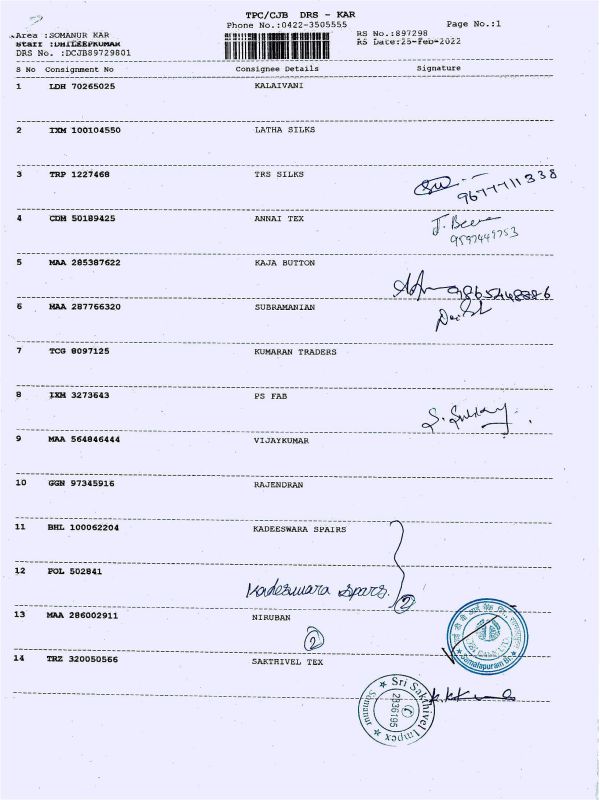 TPC/CJB DRS - KAR
Phone No.:0422-3505555 Page No.:1
Area :SOMANUR KAR RS No.:897298
Staff :DHILEEPKUMAR RS Date:25-Feb-2022
DRS No. :DCJB89729801
S No Consignment No Consignee Details Signature
1 LDH 70265025 KALAIVANI
2 IXM 100104550 LATHA SILKS
3 TRP 1227468 TRS SILKS
9677711338
4 CDM 50189425 ANNAI TEX
9597449753
5 MAA 285387622 KAJA BUTTON
9865448886
6 MAA 287766320 SUBRAMANIAN
7 TCG 8097125 KUMARAN TRADERS
8 IXM 3273643 PS FAB
9 MAA 564846444 VIJAYKUMAR
10 GGN 97345916 RAJENDRAN
11 BHL 100062204 KADEESWARA SPAIRS
12 POL 502841
Kadeswara Spars. 2
13 MAA 286002911 NIRUBAN
2
Somalapuram Br.
14 TRZ 320050566 SAKTHIVEL TEX
Sri Sakthivel Impex
2336195
Somanur